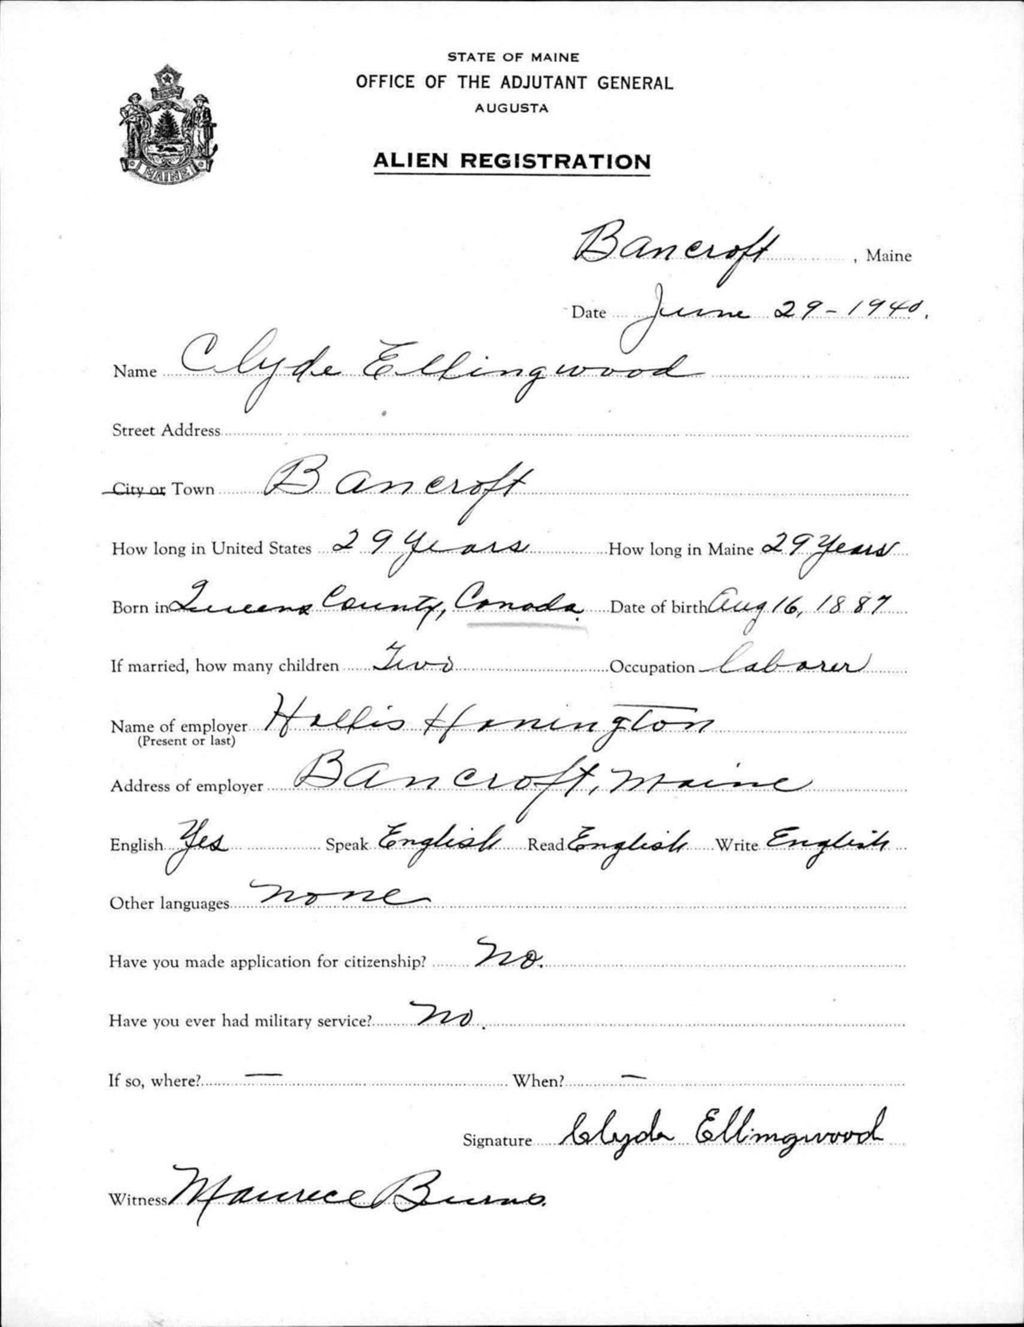 STATE OF MAINE
OFFICE OF THE ADJUTANT GENERAL
AUGUSTA
ALIEN REGISTRATION
MAINE
Bancroft, Maine
Date June 29-1940.
Name Clyde Ellingwood
Street Address
City or Town Bancroft
How long in United States 29 Years How long in Maine 29 Years
Born in Queens County, Canada. Date of birth Aug 16, 1887
If married, how many children Two Occupation laborer
Name of employer Hollis Honington
(Present or last)
Address of employer Bancroft, Maine
English Yes Speak English Read English Write English
Other languages none
Have you made application for citizenship? No.
Have you ever had military service? No.
If so, where? — When? —
Signature Clyde Ellingwood
Witness Maurece Burns.